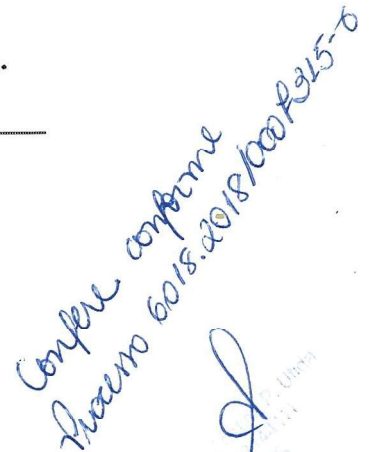 Confere conforme
Processo 6018.2018/000